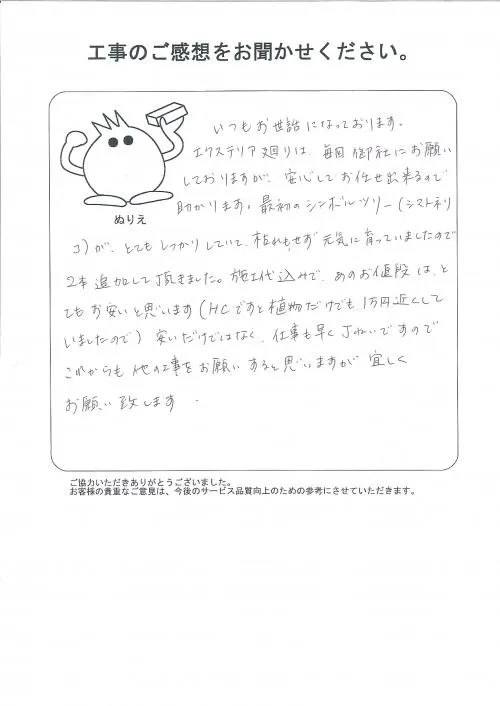 工事のご感想をお聞かせください。
いつもお世話になっております。
エクステリア廻りは、毎回御社にお願い
しておりますが、安心してお任せ出来るので
助かります。最初のシンボルツリー(シマトネリ
ぬりえ
コ)が、とてもしっかりしていて、枯れもせず元気に育っていましたので
2本追加して頂きました。施工代込みで、あのお値段は、と
てもお安いと思います(HCですと植物だけでも1万円近くして
いましたので)安いだけではなく、仕事も早く丁ねいですので
これからも他の工事をお願いすると思いますが宜しく
お願い致します.
ご協力いただきありがとうございました。
お客様の貴重なご意見は、今後のサービス品質向上のための参考にさせていただきます。